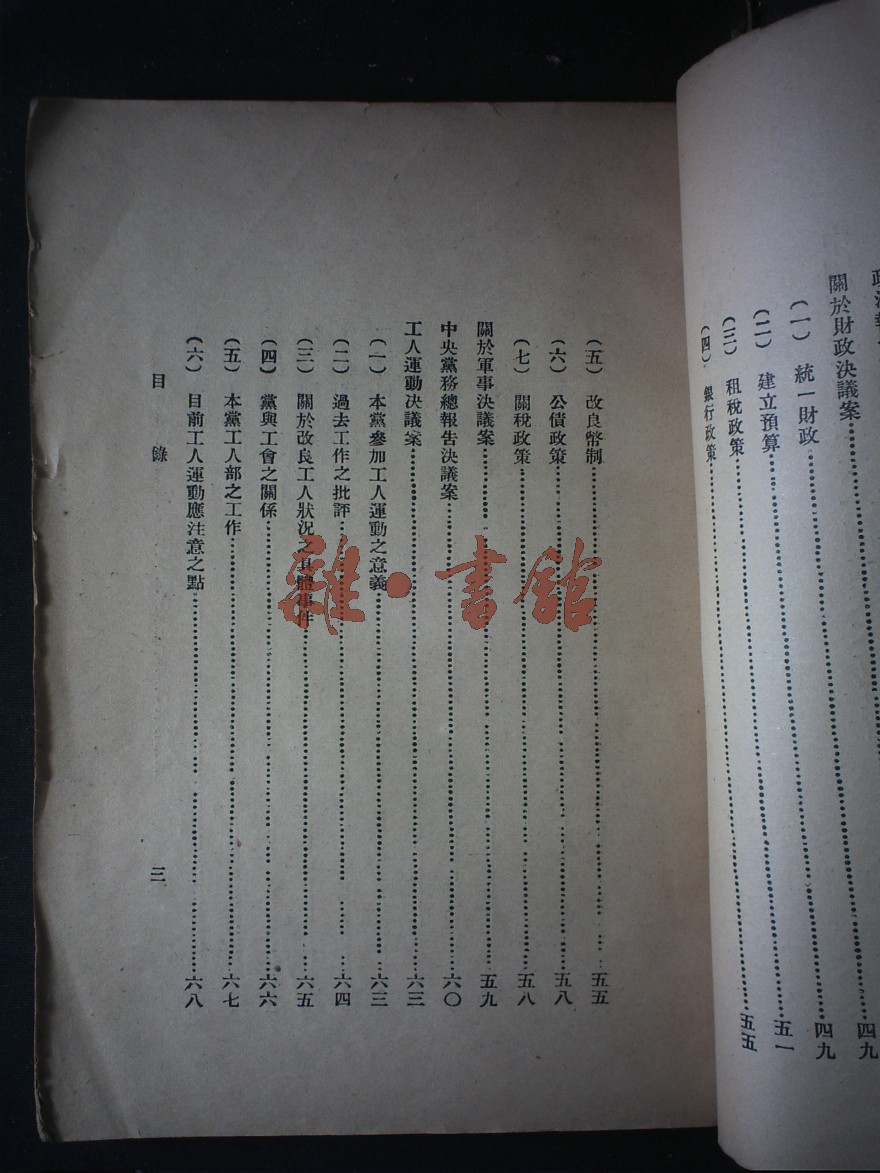 關於財政決議案
(一) 統一財政 四九
(二) 建立預算 四九
(三) 租稅政策 五一
(四) 銀行政策 五五
(五) 改良幣制 五五
(六) 公債政策 五八
(七) 關稅政策 五八
關於軍事決議案 五九
中央黨務總報告決議案 六〇
工人運動決議案 六三
(一) 本黨參加工人運動之意義 六三
(二) 過去工作之批評 六四
(三) 關於改良工人狀況之具體事件 六五
(四) 黨與工會之關係 六六
(五) 本黨工人部之工作 六七
(六) 目前工人運動應注意之點 六八
目錄 三
雜·書館